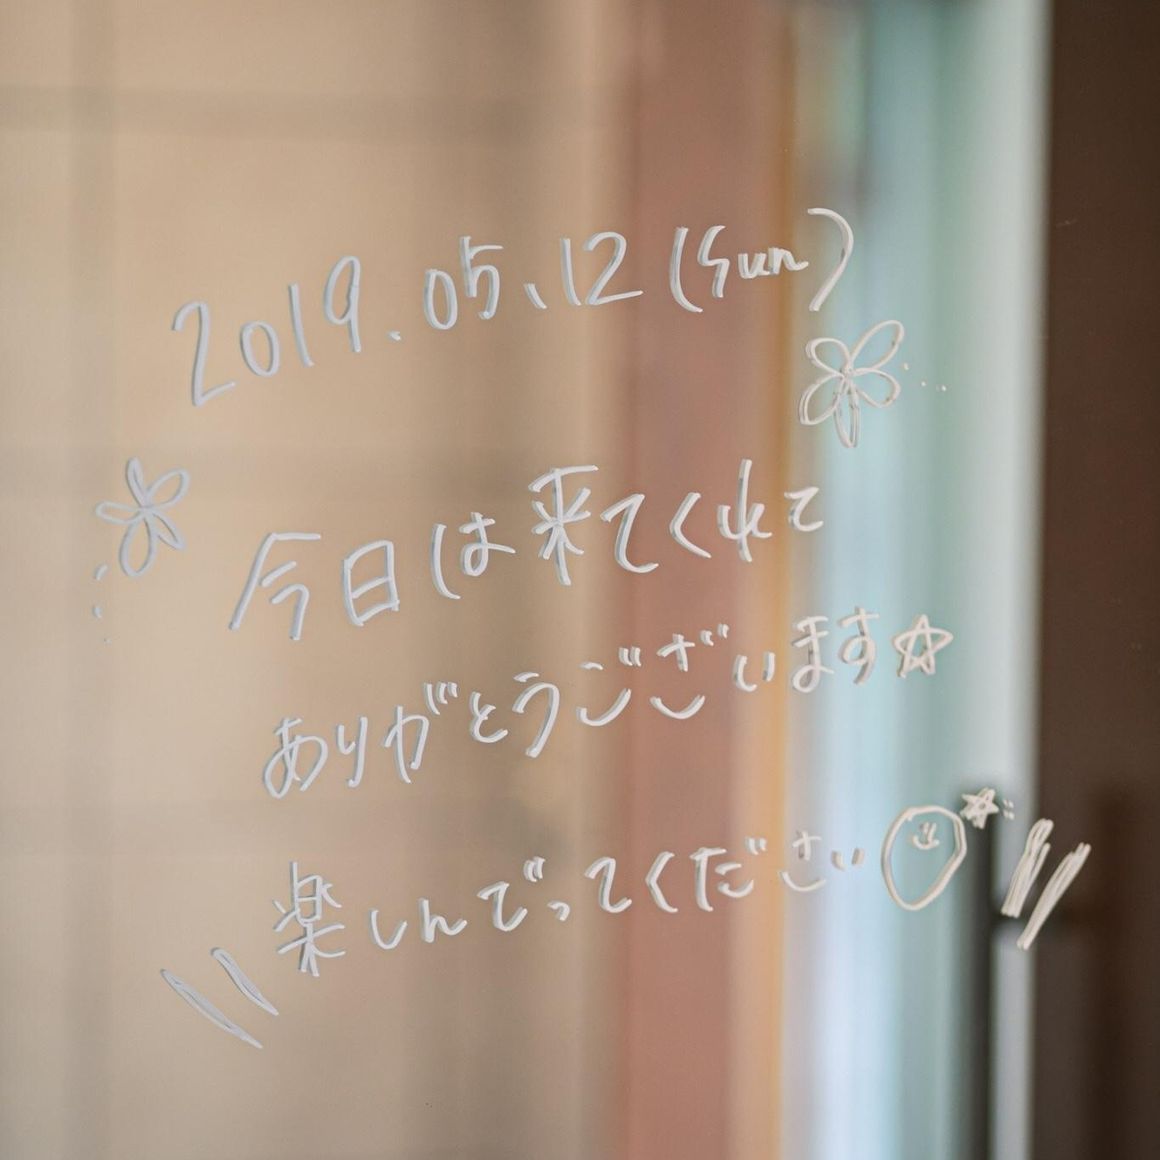 2019.05.12 (Sun)
今日は来てくれて
ありがとうございます☆
楽しんでってください